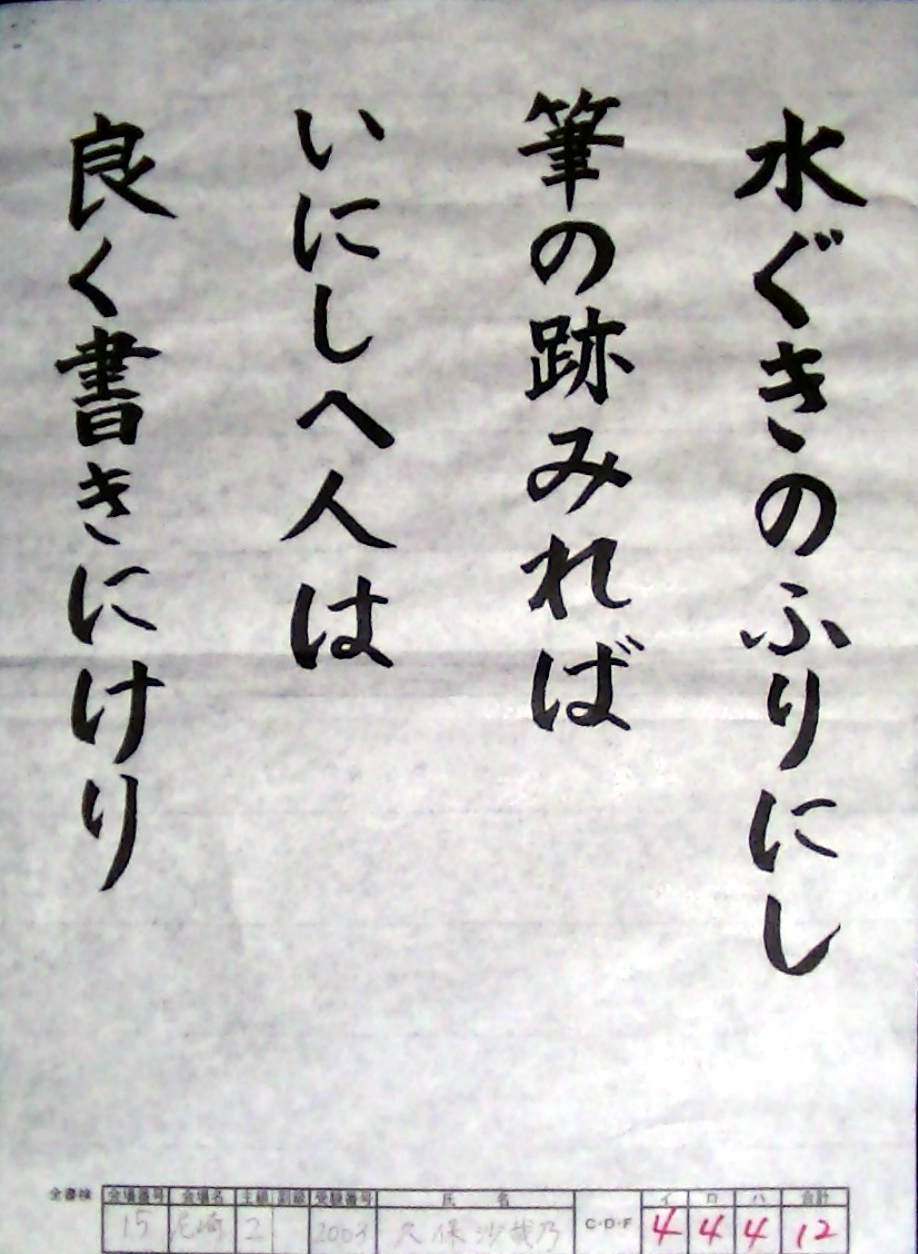 水ぐきのふりにし
筆の跡みれば
いにしへ人は
良く書きにけり
全書検
会場番号 会場名 主級 副級 受験番号 氏名 イ ロ ハ 合計
15 尼崎 2 2003 久保沙哉乃 C・D・F 4 4 4 12